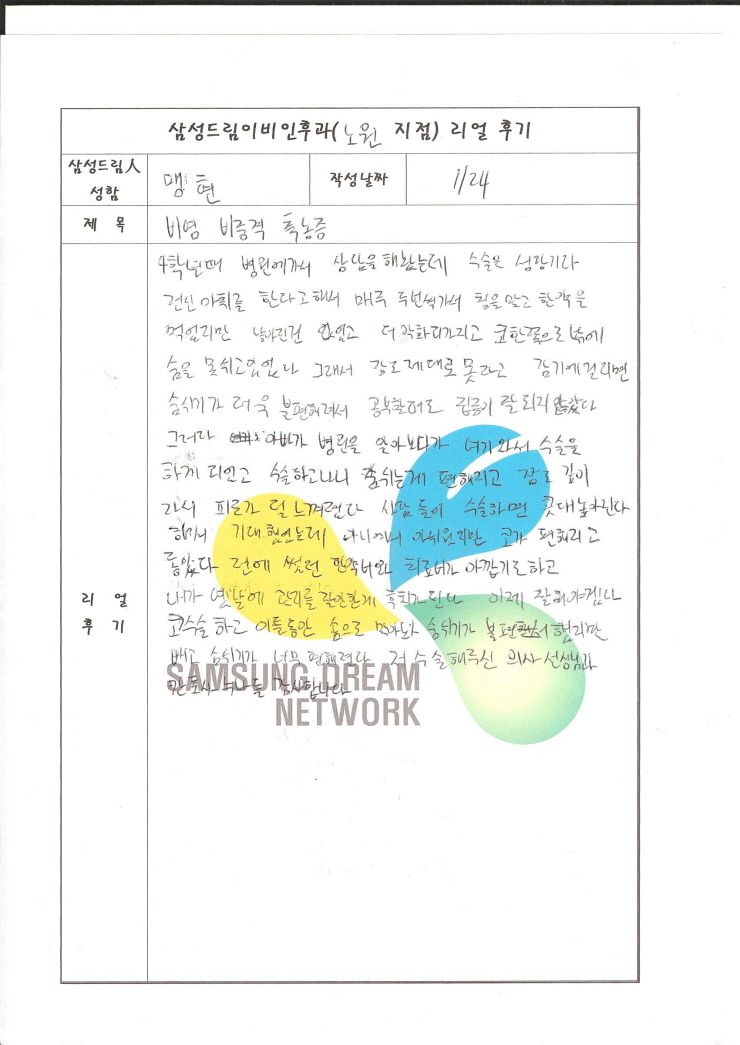 삼성드림이비인후과(노원 지점) 리얼 후기
삼성드림人 성함
맹 현
작성날짜
1/24
제 목
비염 비중격 축농증
리 얼 후 기
4학년때 병원에가서 상담을 해봤는데 수술은 성장기라
전신 마취를 한다고해서 매주 두번씩가서 침을 맞고 한약을
먹었지만 낳아진건 없었고 더 악화되가지고 코한쪽으로 밖에
숨을 못쉬고있었다 그래서 잠도 제대로 못자고 감기에걸리면
숨쉬기가 더욱 불편해져서 공부할때도 집중이 잘 되지 않았다
그러다 아빠가 병원을 알아보다가 여기와서 수술을
하게 되었고 수술하고나니 숨쉬는게 편해지고 잠도 깊이
자서 피로가 덜 느껴졌다 사람들이 수술하면 콧대높아진다
해서 기대했었는데 아니여서 아쉬웠지만 코가 편해지고
좋았다 전에 썼던 한약너와 치료비가 아깝기도하고
내가 옛날에 관리를 잘안한게 후회가된다 이제 잘해야겠다
코수술 하고 이틀동안 솜으로 막아놔 숨쉬기가 불편했지만
빼고 숨쉬기가 너무 편해졌다 저 수술해주신 의사 선생님과
간호사 누나들 감사합니다
SAMSUNG DREAM
NETWORK